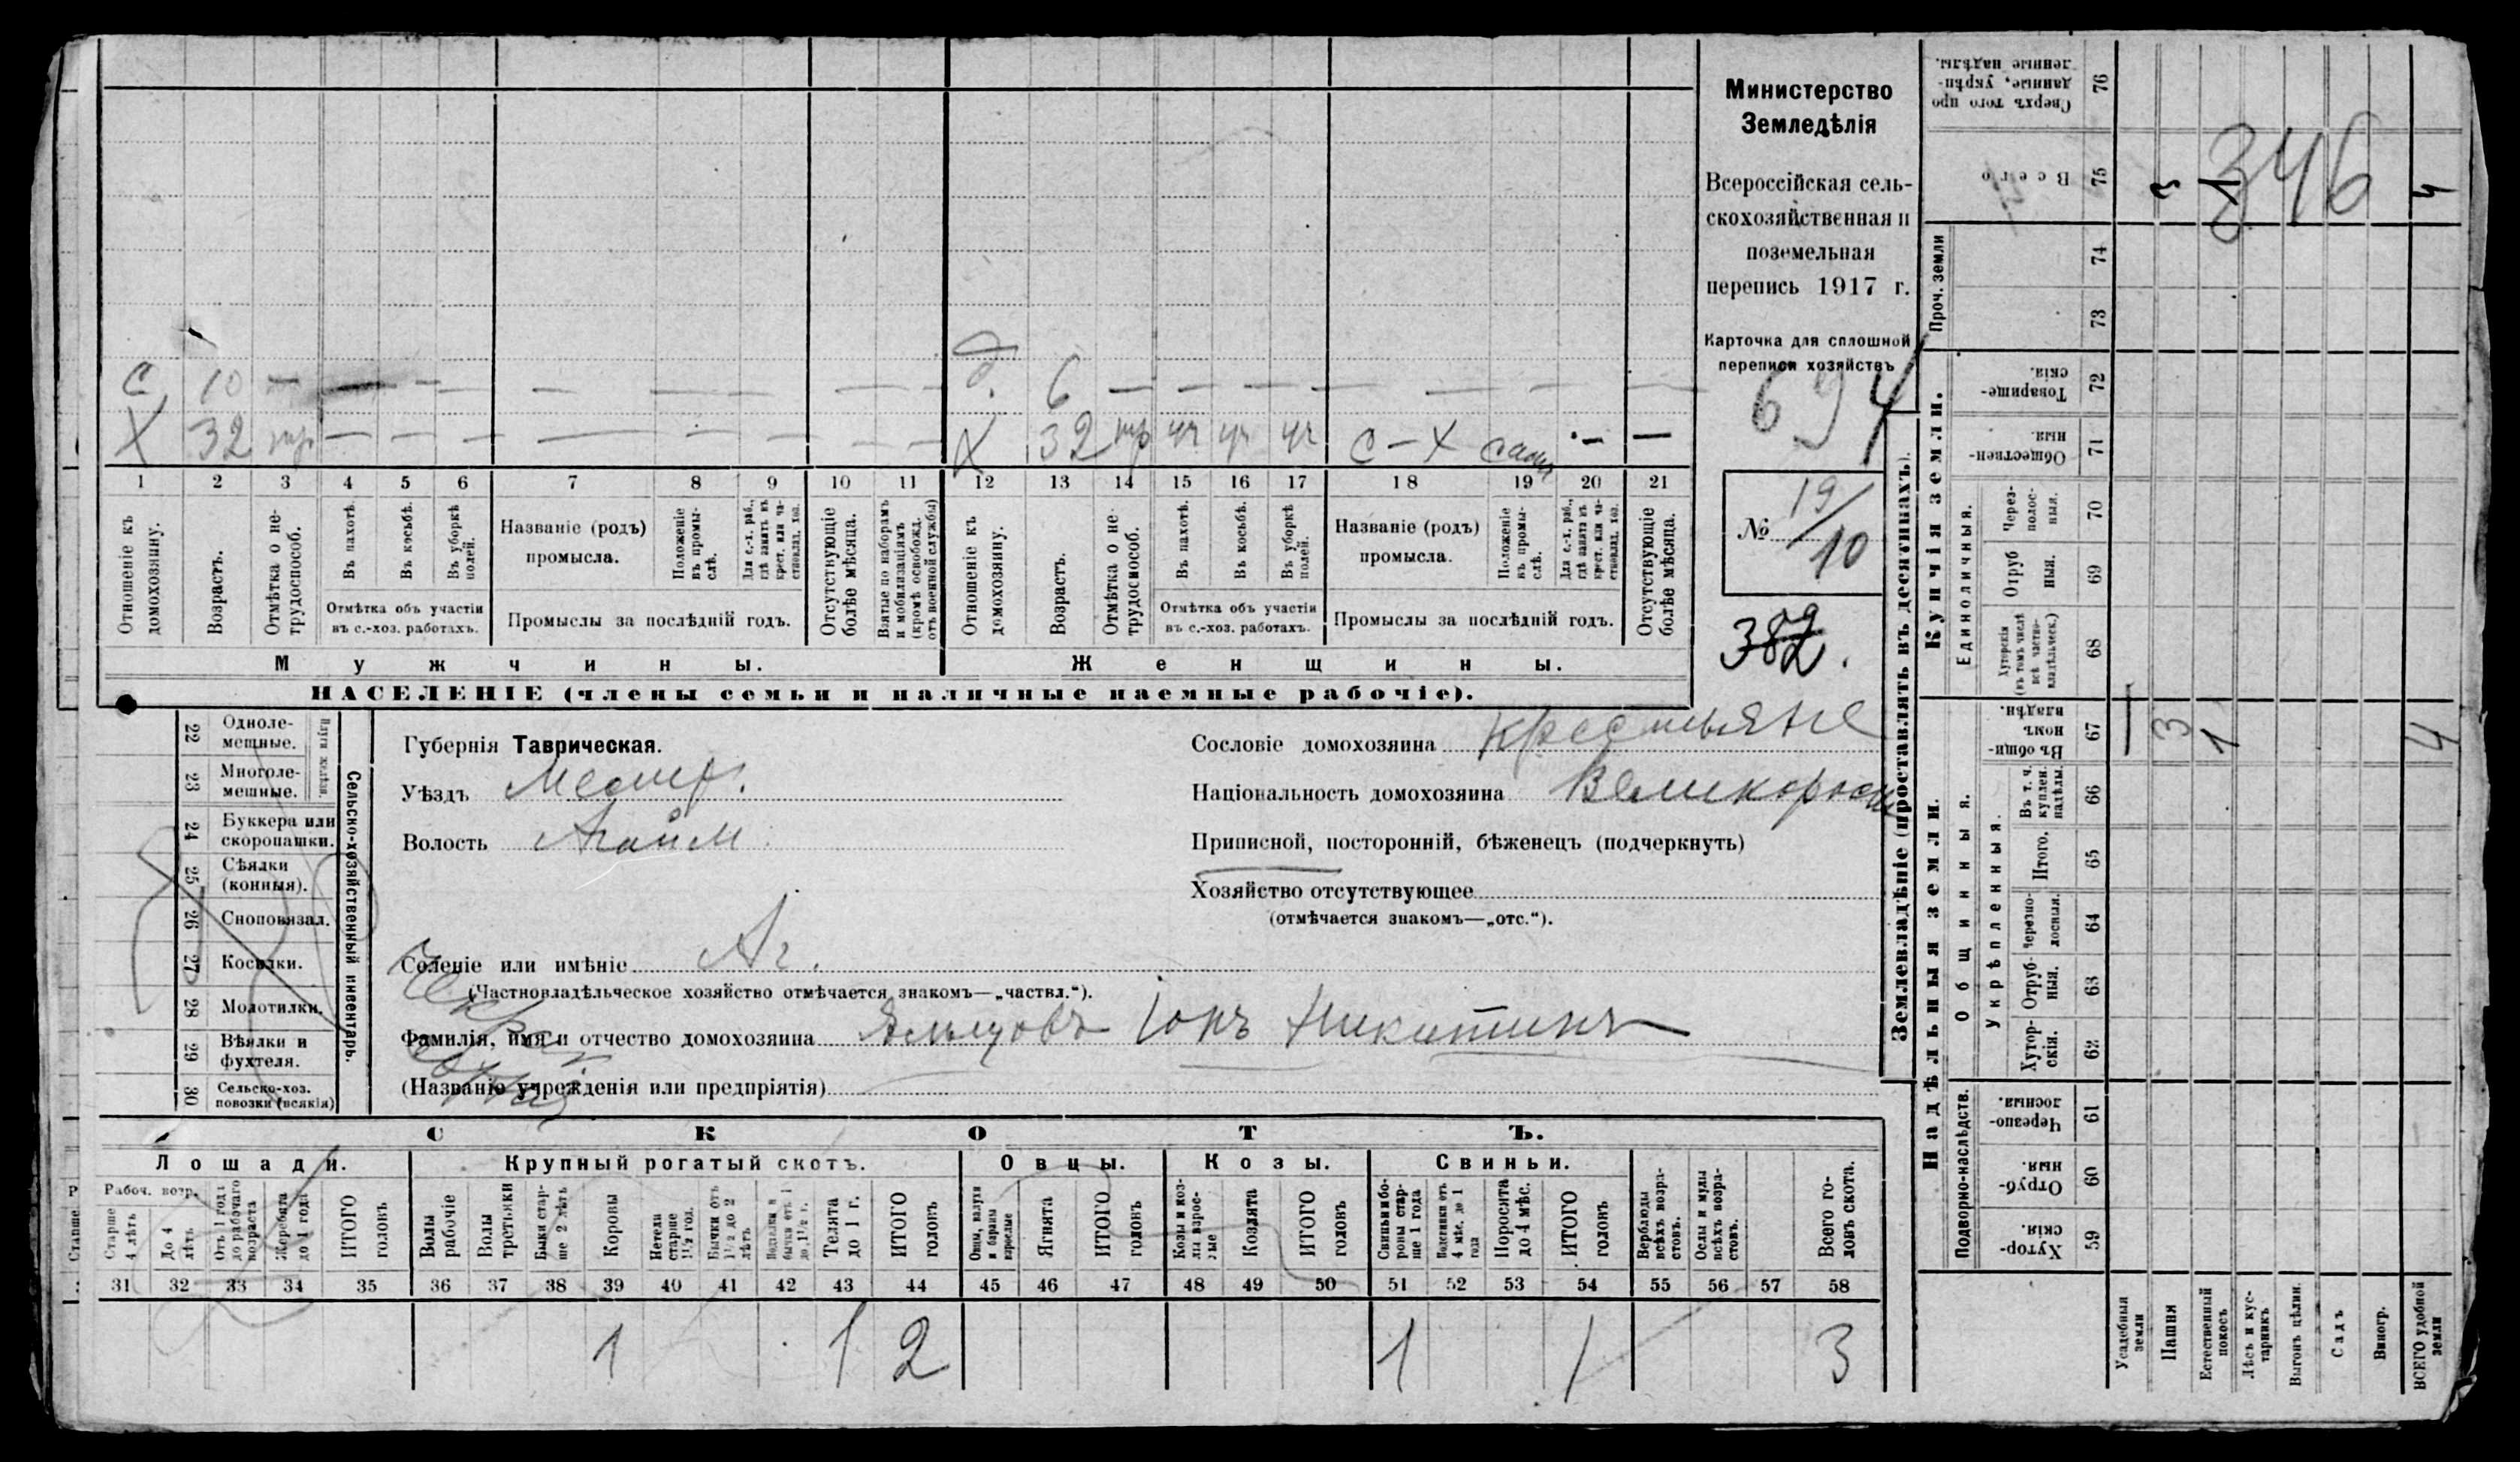 Министерство
Земледѣлія
Всероссійская сель-
скохозяйственная и
поземельная
перепись 1917 г.
Карточка для сплошной
переписи хозяйствъ
694
№ 19/10
382.
С 10 — — — — — — — —
Х 32 тр — — — — — — — —
д. 6 — — — — — — —
Х 32 тр уч уч уч С-Х — —
1 2 3 4 5 6 7 8 9 10 11 12 13 14 15 16 17 18 19 20 21
Отношеніе къ домохозяину.
Возрастъ.
Отмѣтка о не-трудоспособ.
Въ пахотѣ.
Въ косьбѣ.
Въ уборкѣ полей.
Отмѣтка объ участіи
въ с.-хоз. работахъ.
Названіе (родъ)
промысла.
Положеніе въ промы-слѣ.
Для с.-х. раб., гдѣ занятъ въ крест. или ча-стновлад. хоз.
Промыслы за послѣдній годъ.
Отсутствующіе болѣе мѣсяца.
Взятые по наборамъ и мобилизаціямъ (кромѣ освобожд. отъ военной службы)
Отношеніе къ домохозяину.
Возрастъ.
Отмѣтка о не-трудоспособ.
Въ пахотѣ.
Въ косьбѣ.
Въ уборкѣ полей.
Отмѣтка объ участіи
въ с.-хоз. работахъ.
Названіе (родъ)
промысла.
Положеніе въ промы-слѣ.
Для с.-х. раб., гдѣ занята въ крест. или ча-стновлад. хоз.
Промыслы за послѣдній годъ.
Отсутствующіе болѣе мѣсяца.
Мужчины.
Женщины.
НАСЕЛЕНІЕ (члены семьи и наличные наемные рабочіе).
22 Одноле-мещные.
23 Многоле-мешные.
24 Буккера или скоропашки.
25 Сѣялки (конныя).
26 Сноповязал.
27 Косилки.
28 Молотилки.
29 Вѣялки и фухтеля.
30 Сельско-хоз. повозки (всякія)
Сельско-хозяйственный инвентарь.
Губернія Таврическая.
Уѣздъ Мелит.
Волость Агайм
Селеніе или имѣніе Аг.
(Частновладѣльческое хозяйство отмѣчается знакомъ—„частвл.“).
Фамилія, имя и отчество домохозяина Іонъ Никитинъ
(Названію учрежденія или предпріятія)
Сословіе домохозяина крестьяне
Національность домохозяина Великороссъ
Приписной, посторонній, бѣженецъ (подчеркнуть)
Хозяйство отсутствующее
(отмѣчается знакомъ—„отс.“).
СКОТЪ.
Лошади.
Крупный рогатый скотъ.
Овцы.
Козы.
Свиньи.
Рабоч. возр.
Старше 4 лѣтъ
До 4 лѣтъ
Отъ 1 года до рабочаго возраста
Жеребята до 1 года
ИТОГО головъ
Волы рабочіе
Волы третьяки
Быки стар-ше 2 лѣтъ
Коровы
Нетели старше 1½ год.
Бычки отъ 1½ до 2 лѣтъ
Телята до 1 г.
ИТОГО головъ
Ягнята
ИТОГО головъ
Козы и коз-лы взрос-лые
Козлята
ИТОГО головъ
Свиньи и бо-ровы стар-ше 1 года
Подсвинки отъ 4 мѣс. до 1 года
Поросята до 4 мѣс.
ИТОГО головъ
Верблюды всѣхъ возра-стовъ.
Ослы и мулы всѣхъ возра-стовъ.
Всего го-ловъ скота.
31 32 33 34 35 36 37 38 39 40 41 42 43 44 45 46 47 48 49 50 51 52 53 54 55 56 57 58
1 1 2 1 1 3
Землевладѣніе (проставлять въ десятинахъ).
Купчія земли.
Надѣльныя земли.
Сверхъ того про данные, укрѣп-ленные надѣлы. 76
Всего 75
3 1 4
346
Проч. земли
74
73
Товарище-скія. 72
Обществен-ныя. 71
Единоличныя.
Через-полос-ныя. 70
Отруб ныя. 69
Хуторскія (въ томъ числѣ всѣ частно-владѣльческ.) 68
Общинныя.
Въ общи-номъ владѣн. 67
— 3 1 4
Укрѣпленныя.
Въ т. ч. куплен. надѣлы. 66
Итого. 65
Черезпо-лосныя. 64
Отруб-ныя. 63
Хутор-скія. 62
Подворно-наслѣдств.
Черезпо-лосныя. 61
Отруб-ныя. 60
Хутор-скія. 59
Усадебныя земли
Пашня
Естественный покосъ
Лѣсъ и кус-тарникъ
Выгонъ цѣлин.
Садъ
Виногр.
ВСЕГО удобной земли